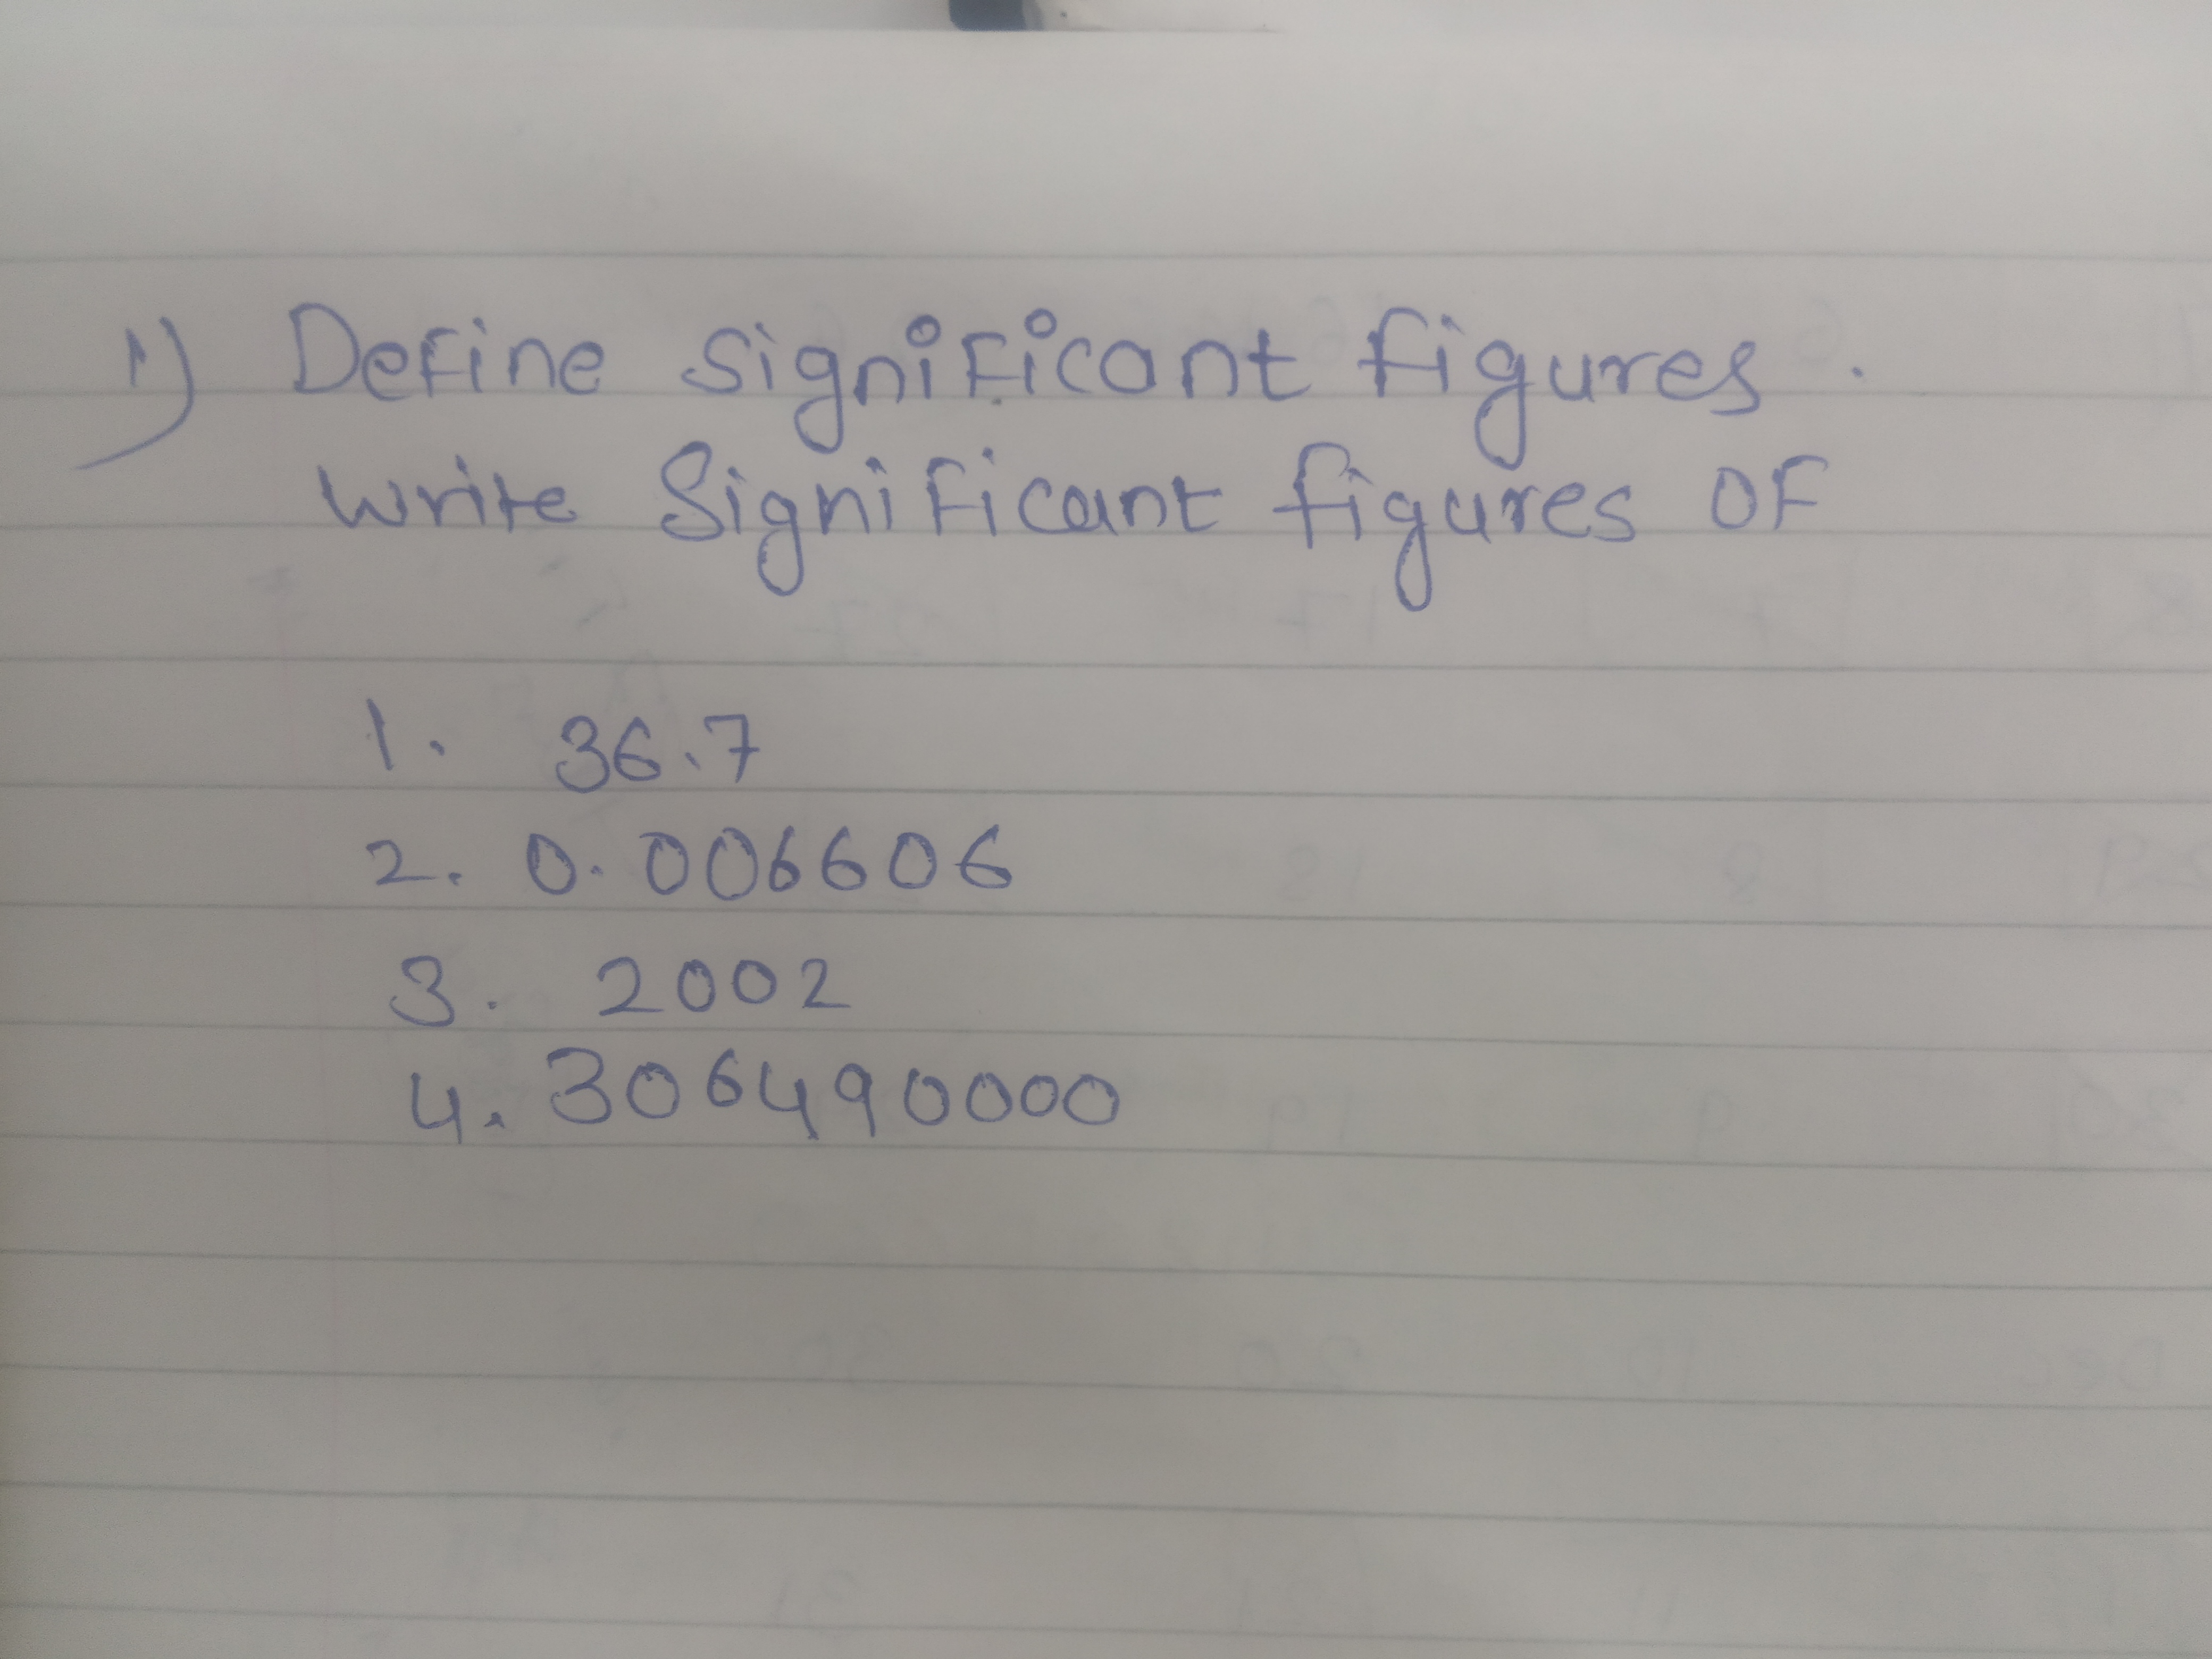 1) Define significant figures.
Write Significant figures OF
1. 36.7
2. 0.006606
3. 2002
4. 306490000